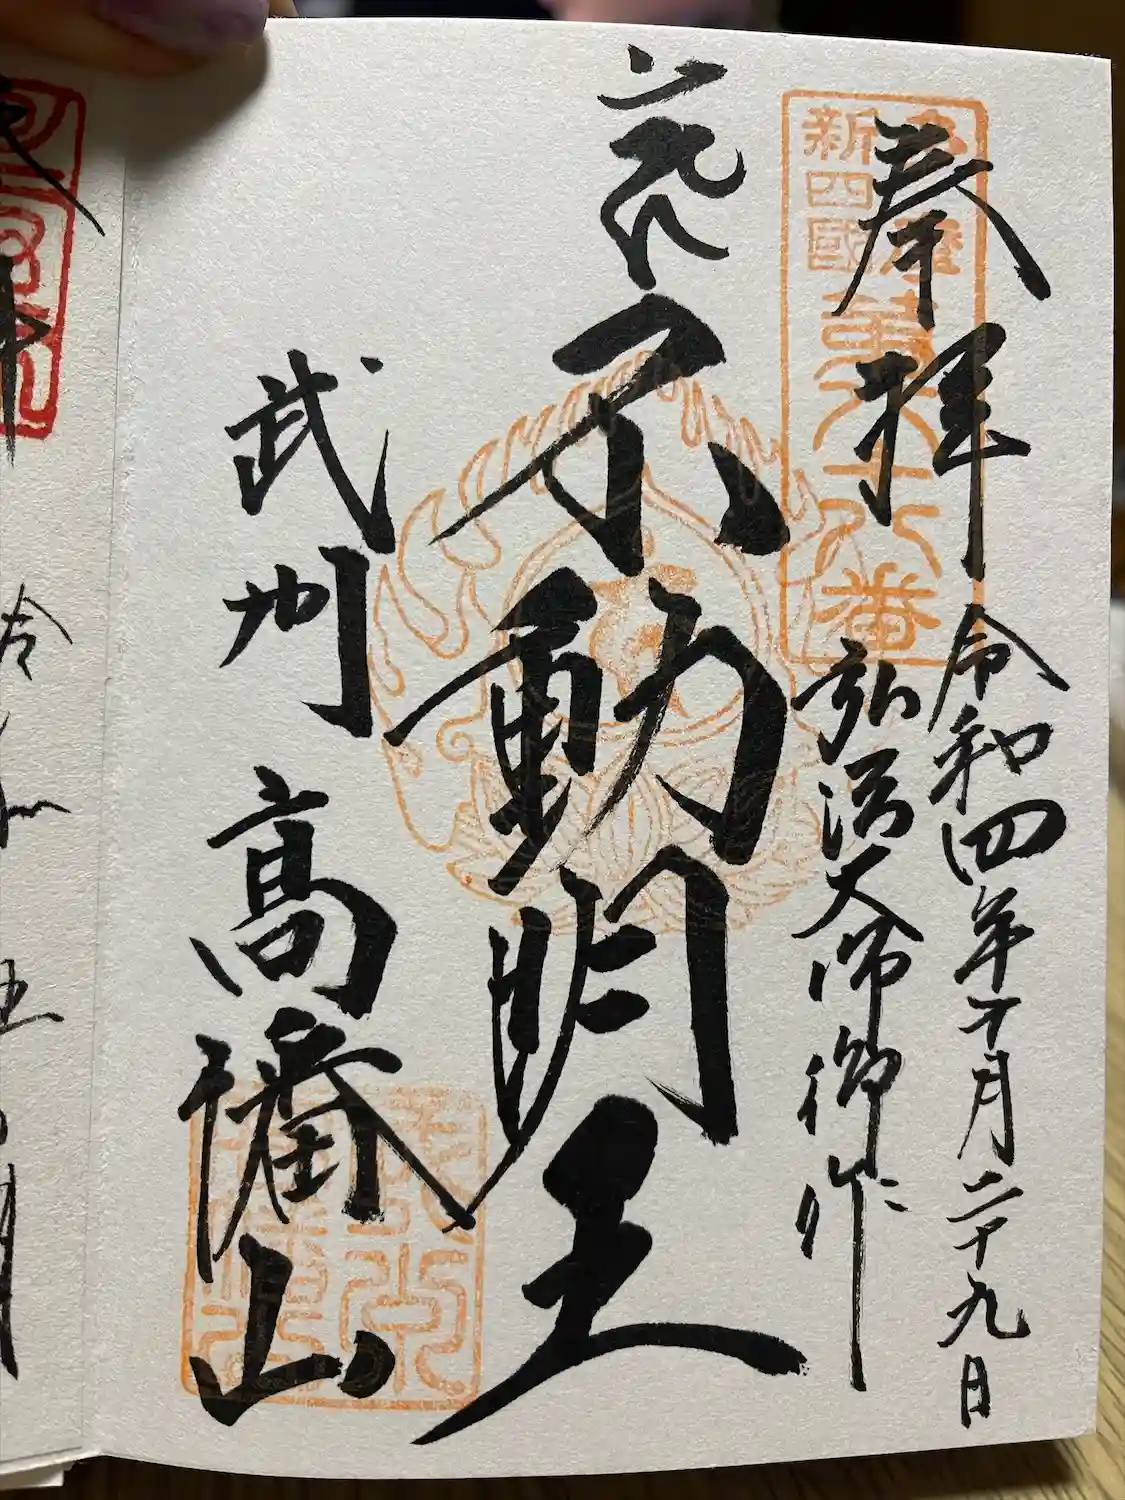 奉拝
令和四年十月二十九日
新四國
弘法大師御作
不動明王
武州
高幡山